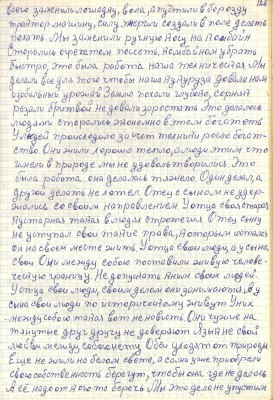 128
всего заменили лошадку, вола, а пустили в борозду
трактор машину, силу энергии создали в поле делать
пахать. Мы заменили ручную косу на комбайн
Старались с рекатом посеять, комбайном убрать
быстро, это была работа наша техническая Мы
делали все для того чтобы наша кукуруза давала нам
изобильный урожай Землю пахали глубоко, сорняк
резали бритвой не давали зарастать Это делалось
людьми старались экономно в этом богатеть
Людей происходило за счет техники росло богат-
ство Они жили хорошо тепло, а люди этим что
имели в природе мы не удовольствовались. Это
была работа, она делалась тяжело. Один делал, а
другой делать не хотел. Отец с сыном не удер-
жались со своим направлением. У отца своя старая
кустарная такая в людях стратегия. Отец сыну
не уступал свои такие права, на которых остался
он на своем месте жить. У отца свои люди, а у сына
свои Они между собою поставили живую челове-
ческую границу. Не допускать к ним своих людей.
У отца свои люди, своим делом они занимаются. А у
сына свои люди по историческому живут У них
между собою такая вот не новость. Они чужие на-
тянутые друг другу не доверяют Язык не свой
любви между собою нету. Оба уходят от природы
Еще не жили на белом свете, а сами уже приобрели
свою собственность берегут, чтобы она где не делась
А ее надо от кого-то беречь Мы это дело не упустим